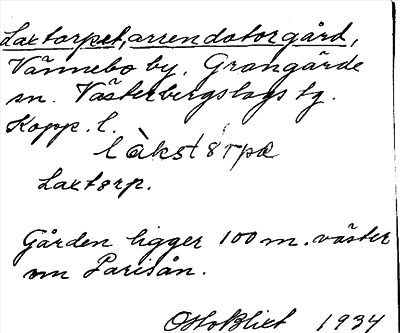 Laxtorpet, arrendatorgård,
Vännebo by, Grangärde
sn. Västerbergslags tg.
Kopp. l.
làkstɜrpɑ
Laxtorp.
Gården ligger 100 m. väster
om Parisån.
Otto Blixt 1934